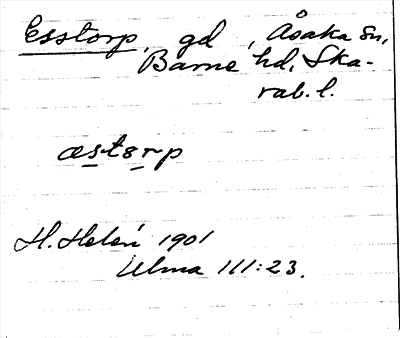 Esstorp, gd, Åsaka sn,
Barne hd, Ska-
rab. l.
æstorp
H. Helén 1901
Ulma 111:23.